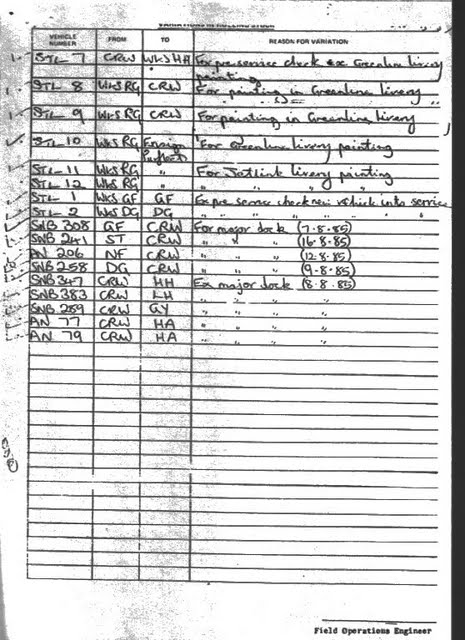 VARIATIONS IN ROLLING STOCK
VEHICLE NUMBER FROM TO REASON FOR VARIATION
STL 7 CRW WKS HA For pre service check & Greenline livery
painting
STL 8 WKS RG CRW For painting in Greenline livery
STL 9 WKS RG CRW For painting in Greenline livery
STL 10 WKS RG Ensign For Greenline livery painting
STL 11 WKS RG " For Jetlink livery painting
STL 12 WKS RG " " " " "
STL 1 WKS GF GF Ex pre service check new vehicle into service
STL 2 WKS DG DG " " " " " "
SNB 308 GF CRW For major dock (7.8.85)
SNB 241 ST CRW " " " (16.8.85)
AN 206 NF CRW " " " (12.8.85)
SNB 258 DG CRW " " " (9.8.85)
SNB 347 CRW HH Ex major dock (8.8.85)
SNB 383 CRW LH " " "
SNB 289 CRW GY " " "
AN 77 CRW HA " " "
AN 79 CRW HA " " "
Field Operations Engineer